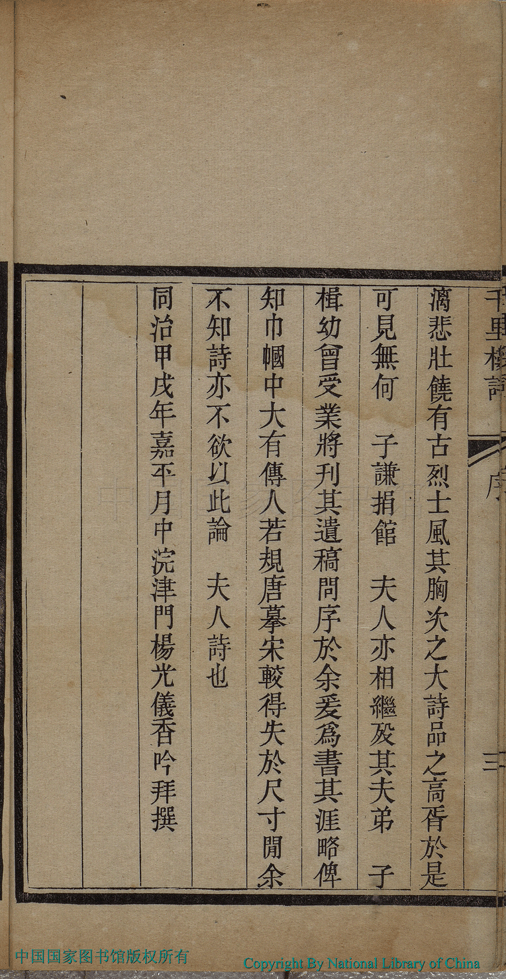 漓悲壯饒有古烈士風其胸次之大詩品之高胥於是
可見無何　子謙捐館　夫人亦相繼歿其夫弟　子
楫幼曾受業將刊其遺稿問序於余爰爲書其涯略俾
知巾幗中大有傳人若規唐摹宋較得失於尺寸閒余
不知詩亦不欲以此論　夫人詩也
同治甲戌年嘉平月中浣津門楊光儀香吟拜撰
中国国家图书馆版权所有
Copyright By National Library of China